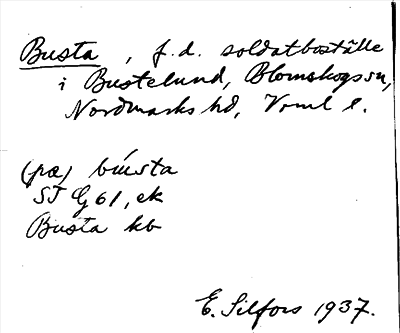 Busta, f.d. soldatboställe
i Bustelund, Blomskogs sn,
Nordmarks hd, Vrml l.
(pæ) bùsta
ST G 61, ek
Busta kb
E. Silfors 1937.